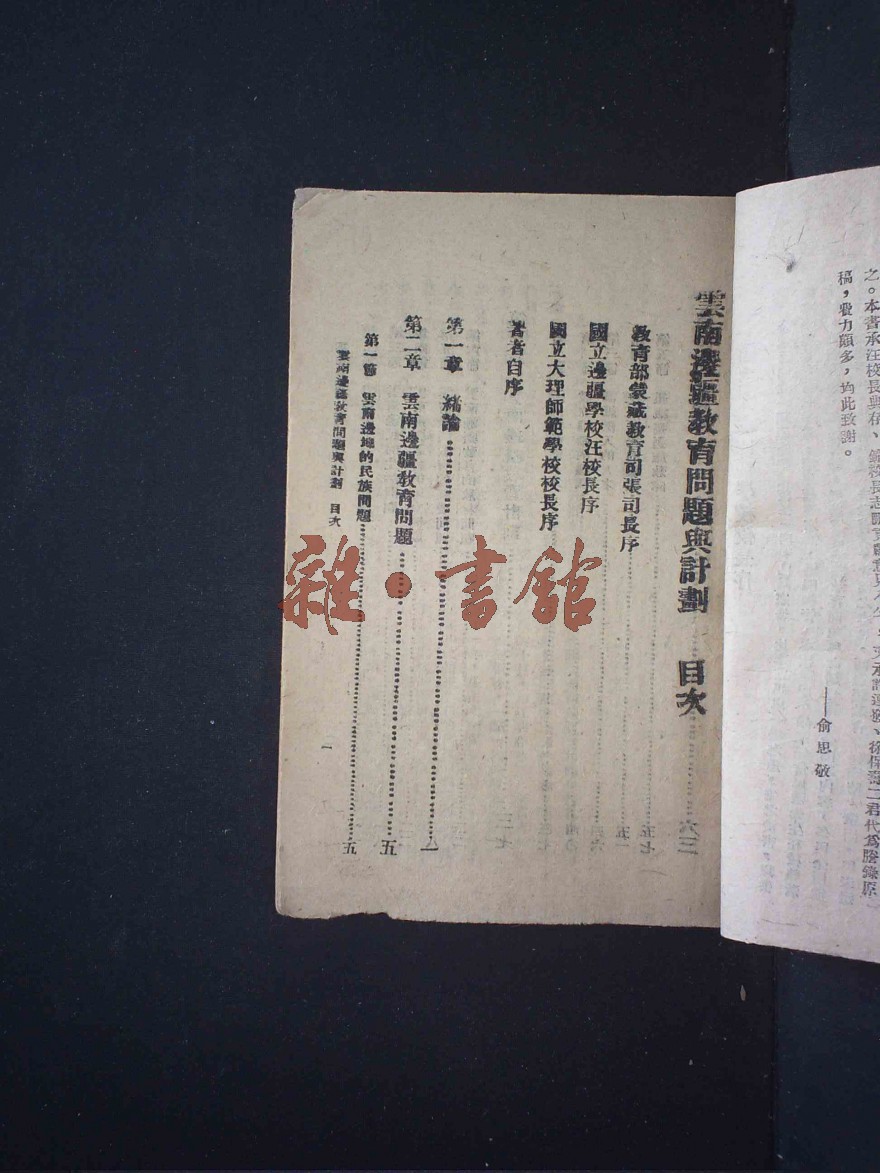 之。本書承汪校長典存、
稿,費力頗多,均此致謝。
二君代為謄錄原
——俞思敬
雲南邊疆教育問題與計劃 目次
教育部蒙藏教育司張司長序
國立邊疆學校汪校長序
國立大理師範學校校長序
著者自序
第一章 緒論……一
第二章 雲南邊疆教育問題……五
第一節 雲南邊地的民族問題……五
雲南邊疆教育問題與計劃 目次
一
雜·書館